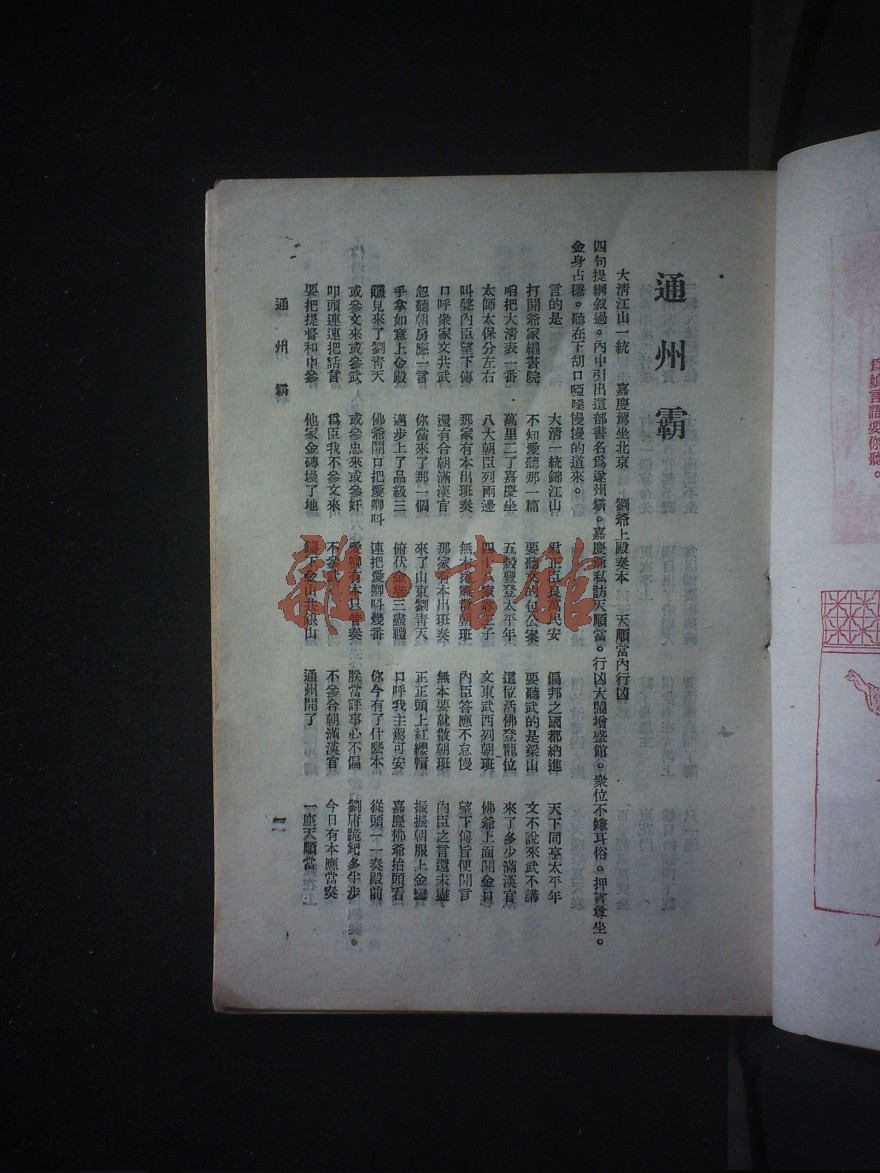 通州霸
大清江山一統　嘉慶駕坐北京　劉爺上殿奏本　天順當內行凶
四句提綱敘過。內中引出這部書名爲通州霸。嘉慶爺私訪天順當。行凶大鬧增盛館。衆位不嫌耳俗。押言尊坐。
金身占穩。聽在下胡口啞嗓慢慢的道來。
言的是　大清一統錦江山　君正臣良萬民安　偏邦之國都納進　天下同享太平年
打開爺家繡書院　不知愛聽那一篇　要聽文的位公案　要聽武的是梁山　文不說來武不講
咱把大清表一番　萬里二了嘉慶坐　五穀豐登太平年　這位活佛登龍位　來了多少滿漢官
太師太保分左右　八大朝臣列兩邊　文東武西列朝班　佛爺上面開金口
叫聲內臣望下傳　那家有本出班奏　無本捲簾散朝班　內臣答應不怠慢　望下傳旨便開言
口呼衆家文共武　還有合朝滿漢官　那家有本出班奏　無本要就散朝班　內臣之言還未盡
忽聽朝房應一言　你當來了那一個　來了山東劉青天　正正頭上紅纓帽　振振朝服上金鑾
手拿如意上金殿　邁步上了品級三　俯伏金階三盡禮　口呼我主駕可安　嘉慶佛爺抬頭看
照見來了劉青天　佛爺開口把愛卿叫　連把愛卿叫幾番　你今有了什麽本　從頭一一奏殿前
或參文來或參武　或參忠來或參奸　愛卿有本只管奏　朕當評事心不偏　劉庸跪鈀多半步
叩頭連連把話言　爲臣我不參文來　不參武　不參合朝滿漢官　今日有本應當奏
要把提督和申參　他家金磚墁了地　銀山　通州開了　一座天順當
通州霸
一
雜·書館
爲嬌言語要你聽。